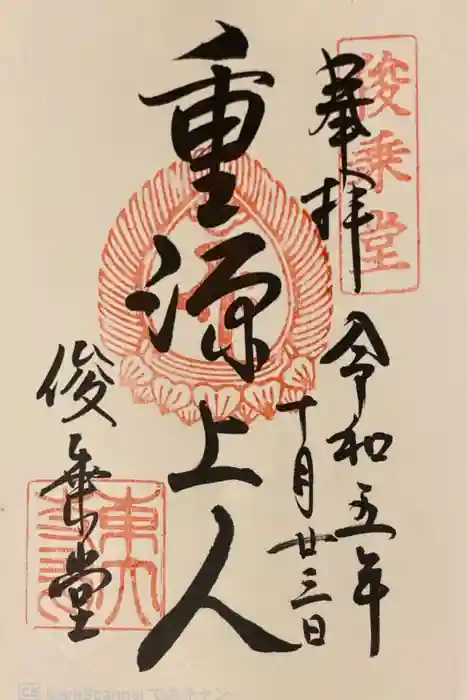 俊乗堂
奉拝
令和五年
十月廿三日
重源上人
俊乗堂
東大
CS CamScanner でスキャン